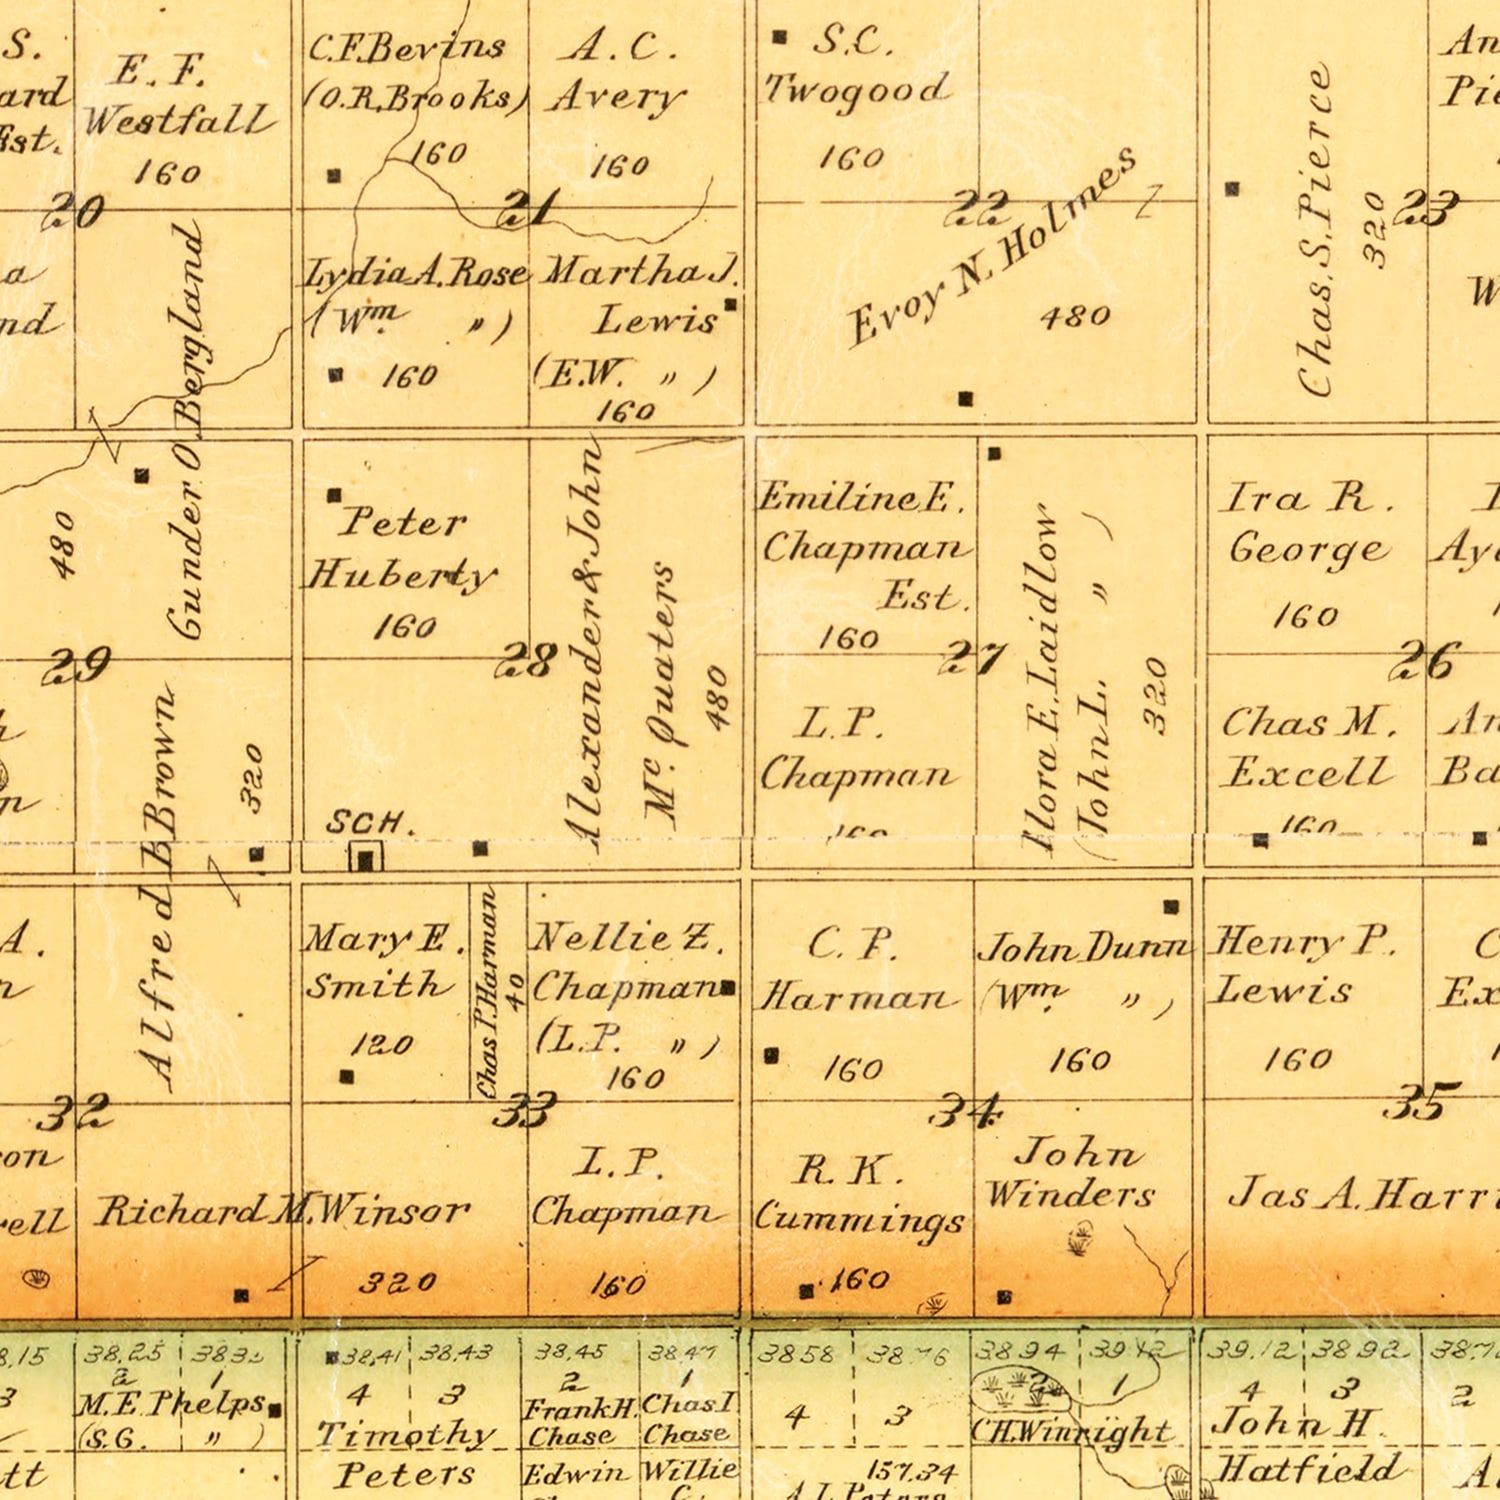 S.
ard
Est.
E. F.
Westfall
160
20
C.F. Bevins
(O.R. Brooks)
160
A. C.
Avery
160
21
S.C.
Twogood
160
22
Evoy N. Holmes
480
Chas. S. Pierce
320
23
An
Pie
a
nd
Gunder O. Bergland
480
Lydia A. Rose
(Wm. ")
160
Martha J.
Lewis
(E.W. ")
160
W
29
Peter
Huberty
160
28
Alexander & John
Mc. Quaters
480
Emiline E.
Chapman
Est.
160
27
Flora E. Laidlow
(John L. ")
320
Ira R.
George
160
26
Ay
Alfred B Brown
320
SCH.
L. P.
Chapman
160
Chas M.
Excell
160
An
Ba
A.
n
Mary E.
Smith
120
Chas P. Harman
40
Nellie Z.
Chapman
(L.P. ")
160
C. P.
Harman
160
John Dunn
(Wm. ")
160
Henry P.
Lewis
160
C
Ex
32
33
34
35
on
rell
Richard M. Winsor
320
L. P.
Chapman
160
R. K.
Cummings
160
John
Winders
Jas A. Harri
8.15
38.25
3
2
1
M. E. Phelps
(S.G. ")
tt
38.41
38.43
4
3
Timothy
Peters
38.45
38.47
2
1
Frank H.
Chase
Chas I
Chase
Edwin
Willie
C.
38 58
38.76
4
3
157.34
A. L. Peters
38 94
39 12
2
1
C.H. Winright
39.12
38 92
4
3
2
John H.
Hatfield
A